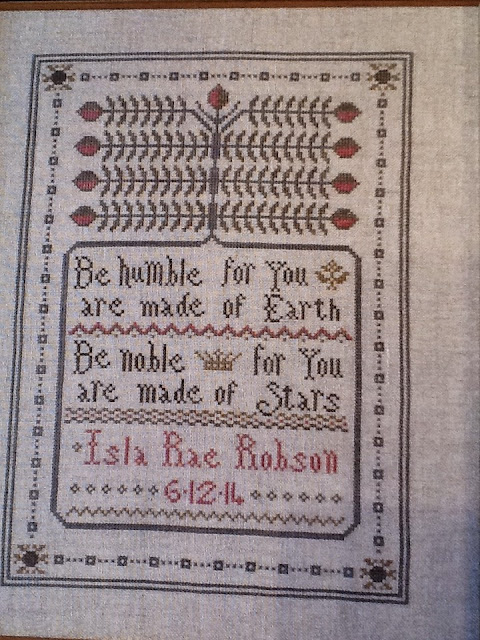 Be humble for You
are made of Earth
Be noble for You
are made of Stars
Isla Rae Robson
6·12·14